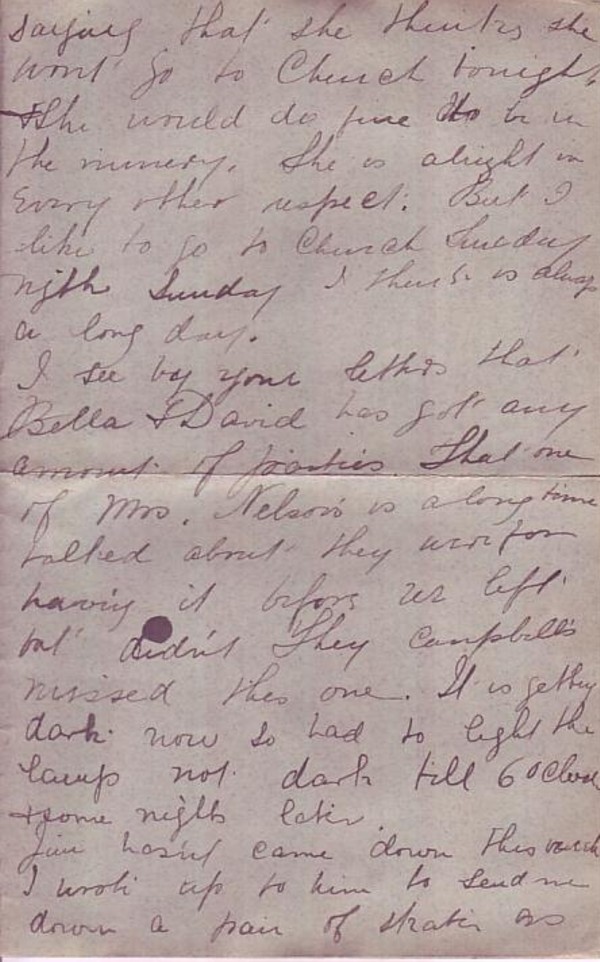 saying that she thinks she
wont go to Church tonight.
She would do fine to be in
the nunnery. She is alright in
Every other respect. But I
like to go to Church Sunday
nigth Sunday I think is always
a long day.
I see by your letters that
Bella & David has got any
amount of parties. That one
of Mrs. Nelson's is a long time
talked about they were for
having it before we left
but didn't They Campbells
missed this one. It is getting
dark now so had to light the
lamp not dark till 6 oClock
& some nights later.
Jim hasn't came down this
I wrote up to him to send me
down a pair of skates as